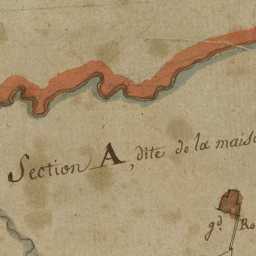 Section A, dite de la mais
gd. Ro